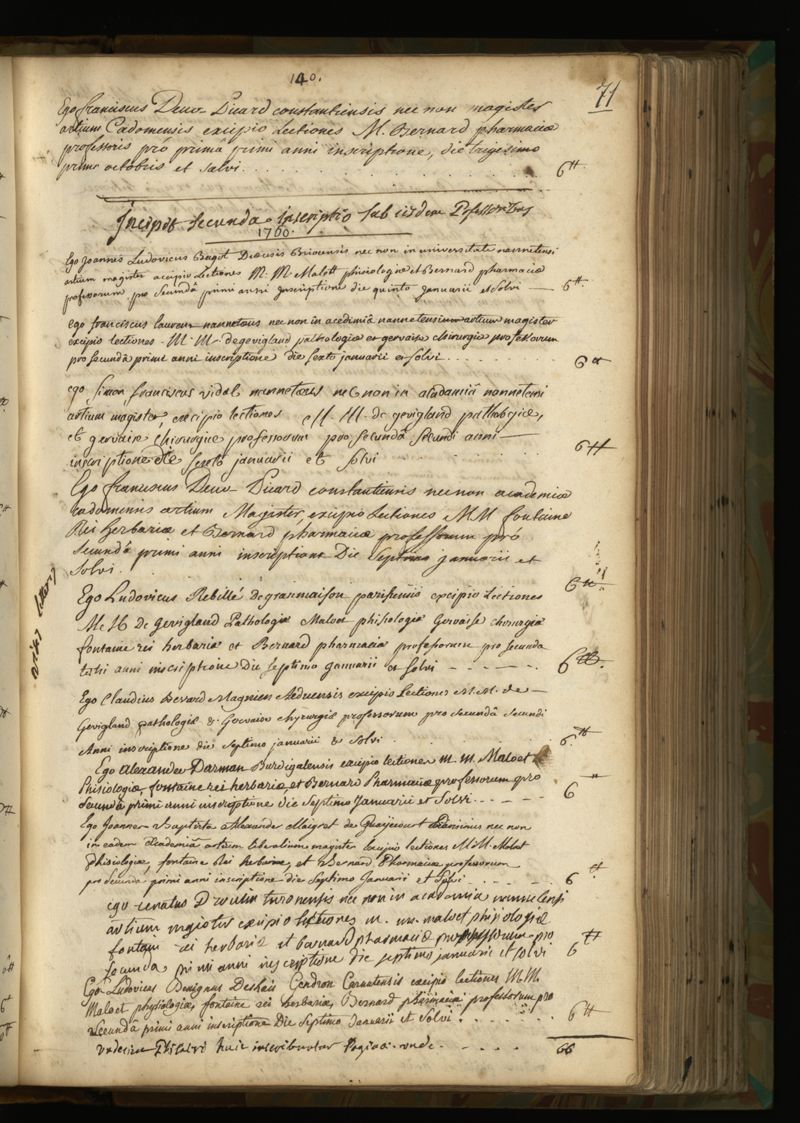 140.
71
Ego franciscus Deux Picard constantiensis nec non magister
artium Cadomensis excipio Lectiones M. Bernard pharmaciæ
professoris pro primâ primi anni inscriptione, die trigesimo
primo octobris et solvi. 6tt
Incipit secunda inscriptio sub iisdem Professoribus
1760.
Ego Joannes Ludovicus Bagot Diœcesis Briocensis nec non in universitate nannetensi
artium magister accipio Lectiones M. M. Malott phisiologiæ et Bernard pharmaciæ
professorum pro secundâ primi anni Inscriptione die quinto Januarii et solvi 6tt
ego franciscus laureur nannetæus nec non in academiâ nannetensi artium magister
excipio lectiones M. M. de gevigland pathologiæ et gervaise chirurgiæ professorum
pro secundâ primi anni inscriptione die sexto januarii et solvi 6tt
ego Simon franciscus vidal nannetæus nec non in academiâ nannetensi
artium magister, excipio lectiones M. M. de gevigland pathologiæ,
et gervaise chirurgiæ professorum pro secundâ secundi anni
inscriptione die sexto januarii et solvi 6tt
Ego franciscus Deux Picard constantiensis nec non academiæ
cadomensis artium Magister, excipio Lectiones M M fontaine
Rei herbariæ et Bernard pharmaciæ professorum pro
secundâ primi anni inscriptione Die septimo januarii et
solvi. 6tt
Ego Ludovicus Rebillé de granmaison parisiensis excipio Lectiones
M. M de gevigland Pathologiæ Maloet phisiologiæ Gervaise chirurgiæ
fontaine rei herbariæ et Bernard pharmaciæ professorum pro secunda
tertii anni inscriptione Die septimo januarii et solvi 6tt.
Ego Claudius Bevard Magnien Æduensis excipio Lectiones M. M. de
Gevigland pathologiæ & Gervaise chyrurgiæ professorum pro secundâ secundi
Anni inscriptione die septimo januarii & solvi 6tt
Ego Alexander Darman Burdigalensis excipio lectiones m. m. Maloet
Phisiologiæ, fontaine rei herbariæ, et Bernard Pharmaciæ professorum pro
secundâ primi anni inscriptione die septimo Januarii et solvi 6tt
Ego Joannes Baptista Alexander Maigret de nec non
in eadem academiâ artium liberalium magister excipio lectiones M. M. Maloet
phisiologiæ, fontaine Rei herbariæ, et Bernard Pharmaciæ professorum
pro secundâ primi anni inscriptione die septimo Januarii et solvi 6tt
ego renatus Drouin turonensis nec non in academia
artium magister excipio lectiones m. m. maloet phisiologiæ
fontaine rei herbariæ et bernard pharmaciæ professorum pro
secunda primi anni inscriptione die septimo januarii et solvi 6tt
Ego Ludovicus Benignus Deshais Gendron Carnutensis excipio lectiones M. M.
Maloet physiologiæ, fontaine rei herbariæ, Bernard pharmaciæ professorum pro
secundâ primi anni inscriptione Die septimo Januarii et solvi 6tt
undecim Philiatri huic inscribuntur Paginæ. unde 66